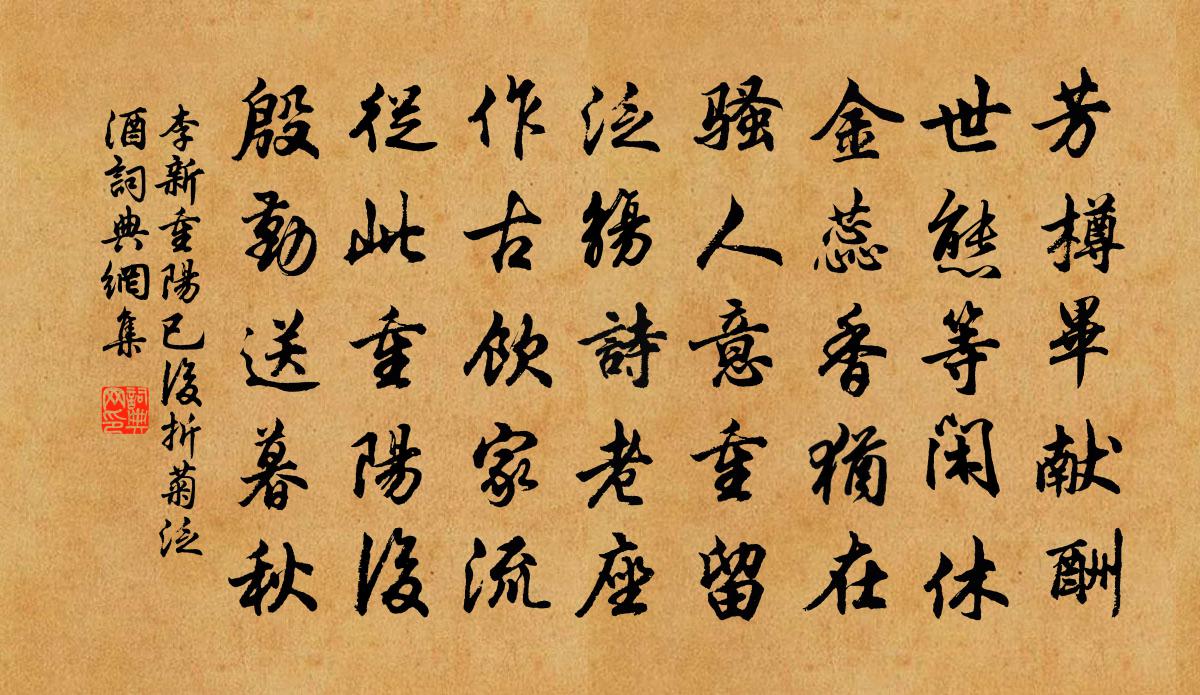 芳樽畢献酬
世態等閑休
金蕊香猶在
騷人意重留
泛觴詩老座
作古飲家流
從此重陽後
殷勤送暮秋
李新重陽已後折菊泛
酒詞典網集
詞典網印